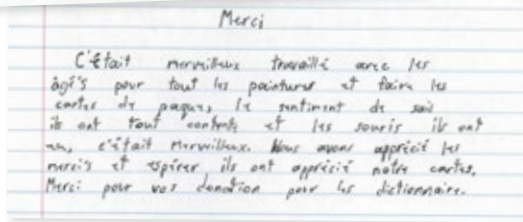 Merci
C'était merveilleux travaillé avec les
âgé's pour tout les peintures et faire les
cartes de paques, le sentiment de
ils ont tout contents et les souris ils ont
eu, c'était merveilleux. Nous avons apprécié les
merci's et espérer ils ont apprécié notre cartes.
Merci pour vos donation pour les dictionnaire.